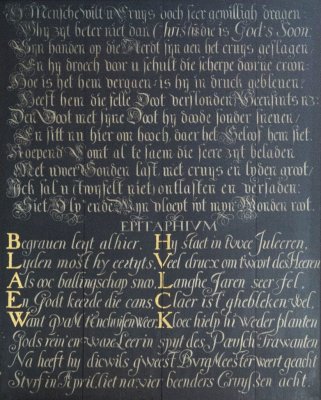 O Mensche wilt u Cruys doch seer gewillich dragen:
Ghy zyt beter niet dan Christus die is God's Soon.
Zyn handen op die Aerdt zyn aen het cruys geslagen
En hy droech voor u schult die scherpe doorne croon.
Hoe is het hem vergaen, is hy in druck gebleuen?
Heeft hem die selle Doot verslonden
Den Doot met syne Doot hy doode sonder sneuen,
En sitt nu hier om hooch, daer het Geloof hem siet.
Roepend Comt al te saem die seere zyt beladen
Met uwer Sonden last, met cruys en lyden groot,
Ick sal u niet ontlasten en versaden:
Siet Wyn vloeyt wt myn Wonden root.
EPITAPHIVM
Begrauen leyt alhier, Hy staet in twee Juleeren,
Lyden most hy eertyts, Veel druck om twort des Heeren
Als ooc ballingschap snoo, Langhe Jaren seer fel,
En Godt keerde die cans, Claer ist ghebleken wel,
Want quam t'Enchuysen weer, Kloec hielp hi weder planten
Gods rein' en ware Leer in spyt des Paeusch Trawanten
Na heeft hy dicwils gweest BurgMeester weert geacht
Styrf in April liet na vier beenders Cruyssen acht